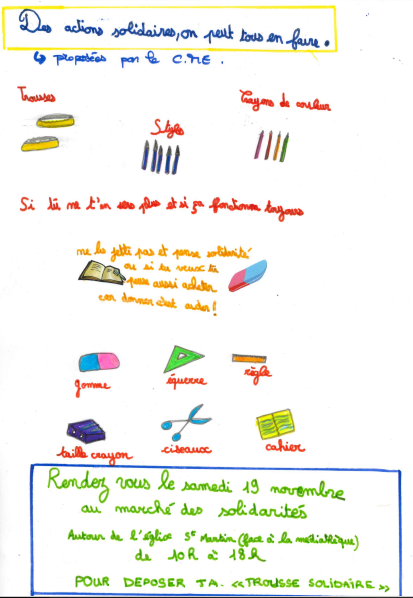 Des actions solidaires, on peut tous en faire.
↳ proposées par le C.ME.
Trousses
Crayons de couleur
Stylo
Si tu ne t'en sers plus et si ça fonctionne toujours
ne le jette pas et pense solidarité
ou si tu veux tu
peux aussi acheter
car donner c'est aider!
gomme
équerre
règle
taille crayon
ciseaux
cahier
Rendez vous le samedi 19 novembre
au marché des solidarités
Autour de l'église St Martin (face à la médiathèque)
de 10h à 18h
POUR DEPOSER TA «TROUSSE SOLIDAIRE»